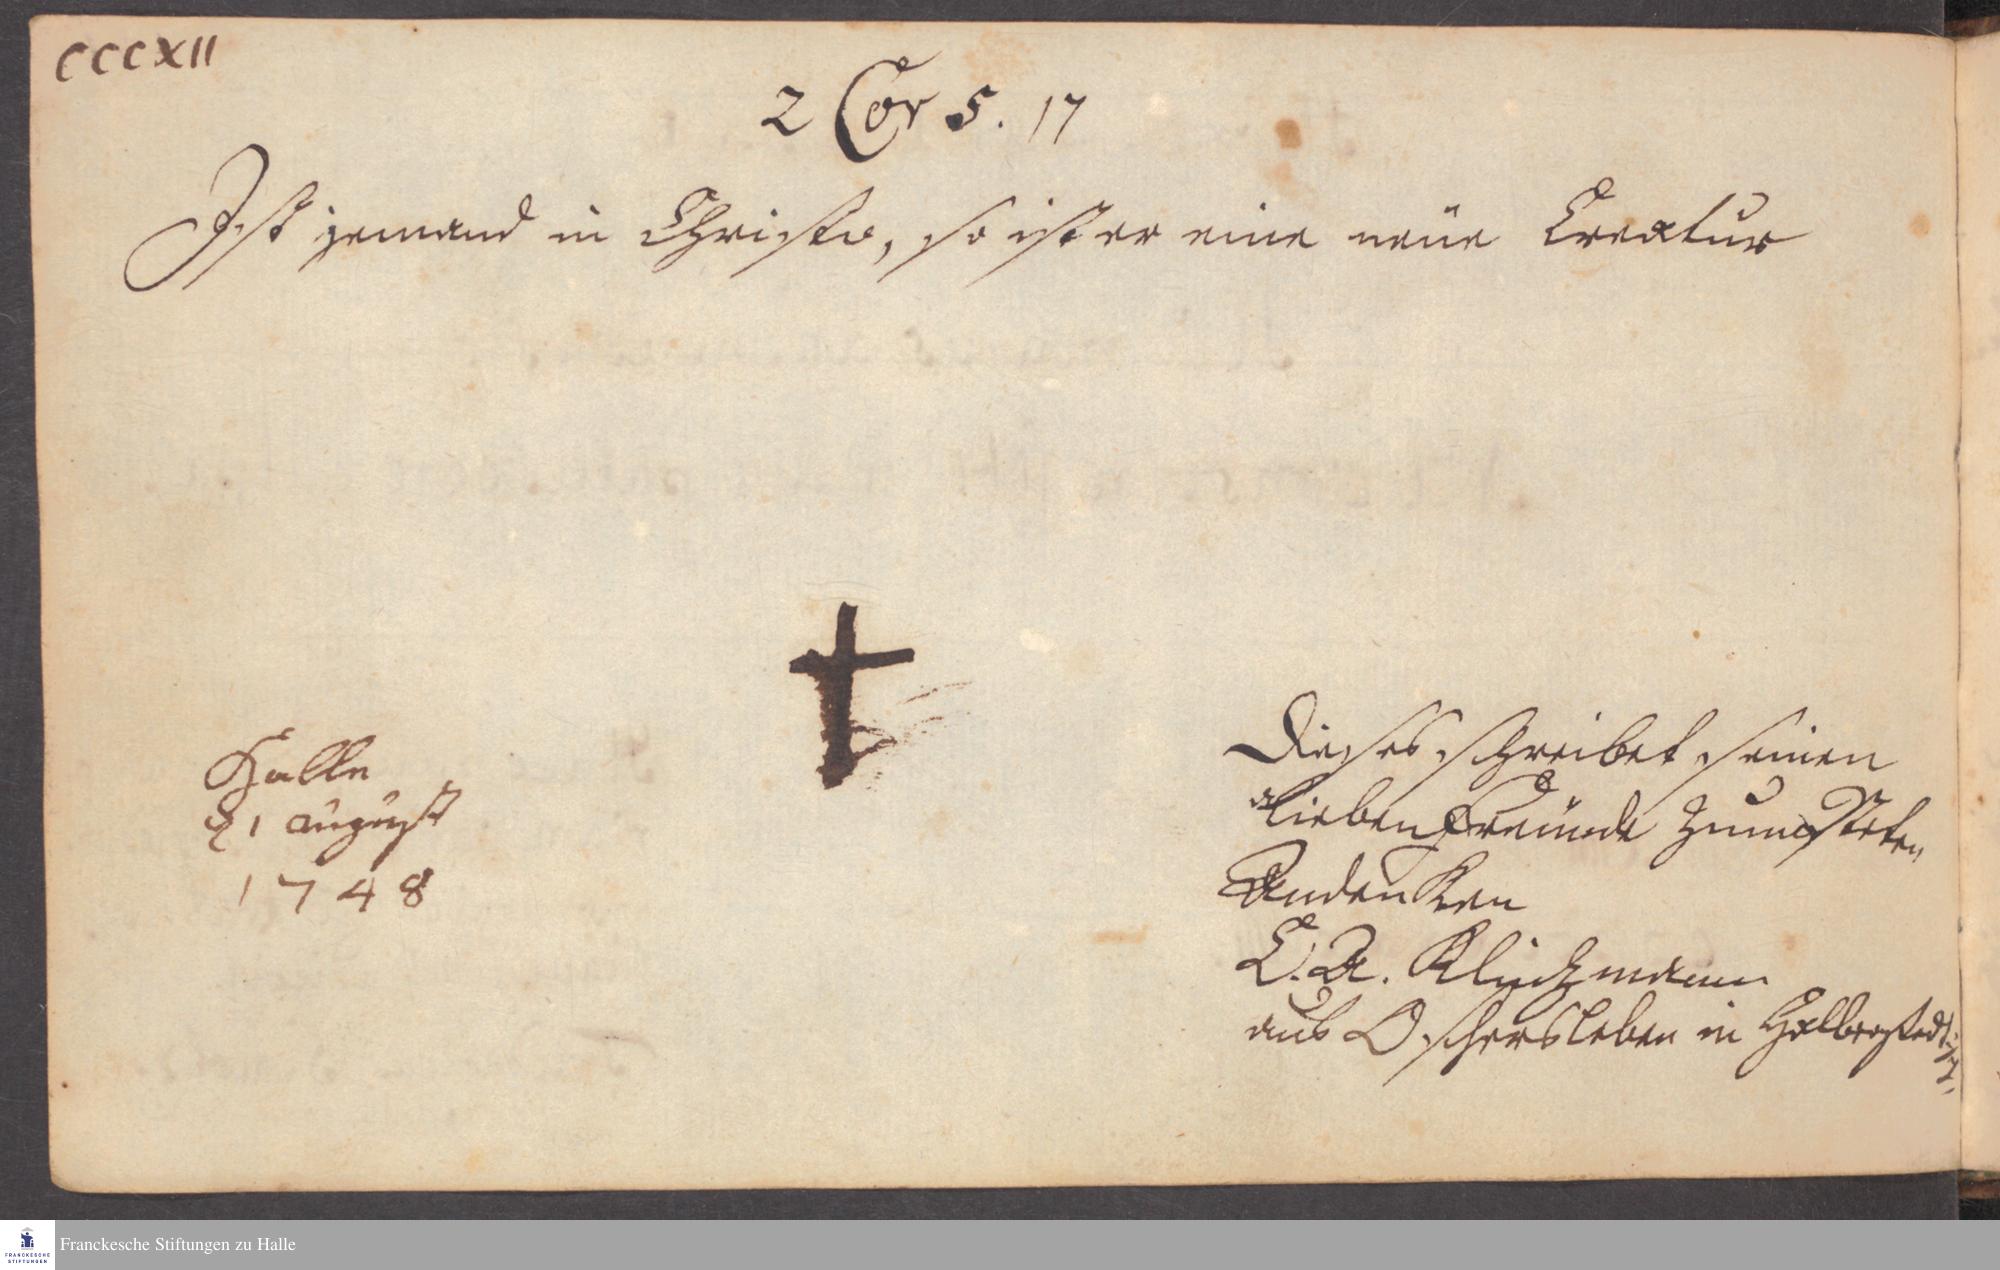 CCCXII
2 Cor 5. 17
Ist jemand in Christo, so ist er eine neüe Creatur
Halle
1 august
1748
Dieses schreibet seinen
lieben Freünde zum Steten
Andenken
C. A. Klinzmann
aus Oschersleben in Halberstedt
Franckesche Stiftungen zu Halle
FRANCKESCHE
STIFTUNGEN